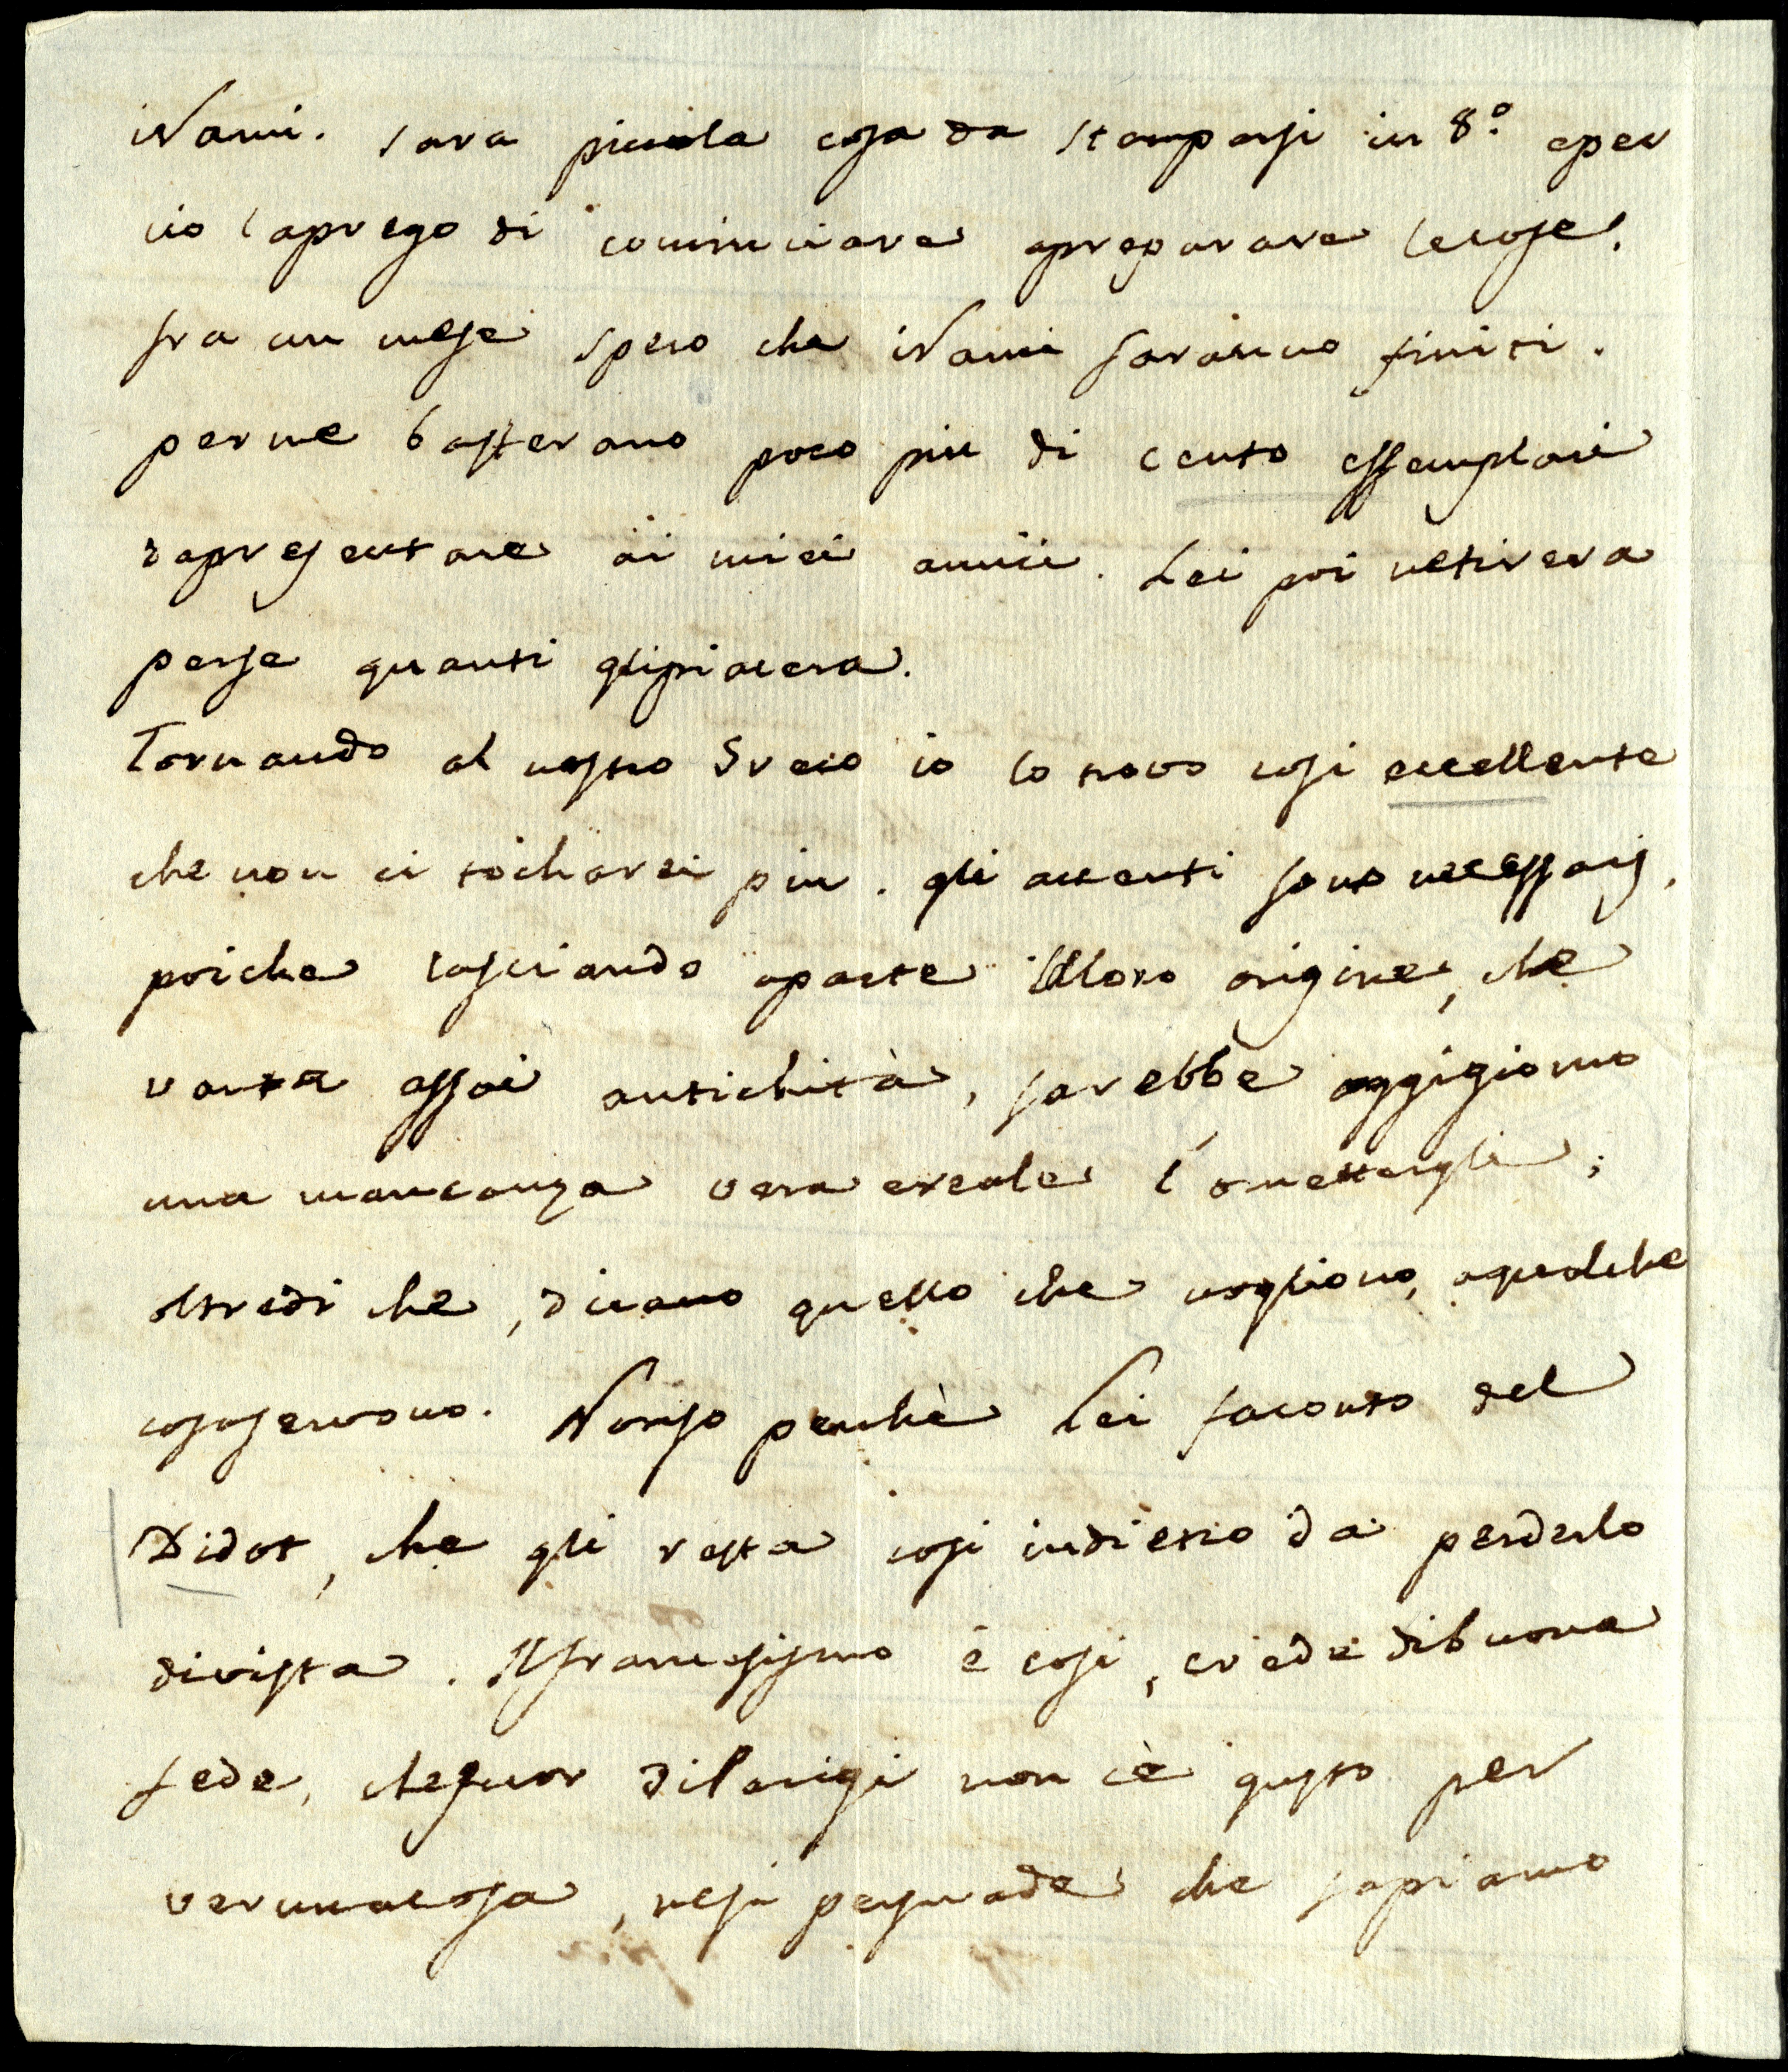 iRami. sara piccola cosa da stamparsi in 8.° eper
cio laprego di cominciare apreparare lecose.
fra un mese spero che iRami saranno finiti.
perme basterano poco piu di cento essemplari
dapresentare ai miei amici. Lei poi netirera
perse quanti glipiacera.
Tornando al nostro Greco io lo trovo cosi eccellente
che non ci tocharei piu. gli accenti sono necessarj,
poiche lasciando aparte illoro origine, che
vanta assai antichità, sarebbe oggigiorno
una mancanza vera ereale l'omettergli;
oltredi che, dicano quello che vogliono, aqualche
cosaservono. Nonso perchè Lei faconto del
Didot, che gli resta cosi indietro da perderlo
divista. Ilfrancesismo è cosi, crede dibuona
fede, chefuor diParigi non cè gusto per
verunacosa, nesi persuade che sapiamo